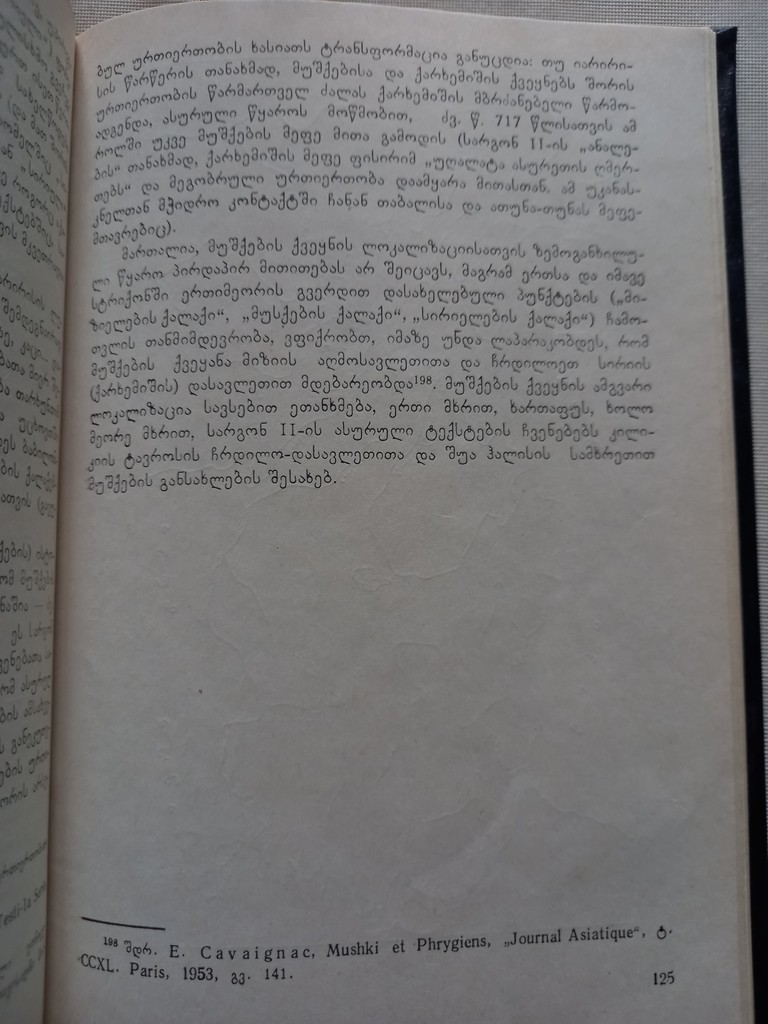 ბულ ურთიერთობის ხასიათს ტრანსფორმაცია განუცდია: თუ იარირი-
სის წარწერის თანახმად, მუშქებისა და ქარხემიშის ქვეყნებს შორის
ურთიერთობის წარმართველ ძალას ქარხემიშის მბრძანებელი წარმო-
ადგენდა, ასურული წყაროს მოწმობით, ძვ. წ. 717 წლისათვის ამ
როლში უკვე მუშქების მეფე მითა გამოდის (სარგონ II-ის „ანალე-
ბის“ თანახმად, ქარხემიშის მეფე ფისირიმ „უღალატა ასურეთის ღმერ-
თებს“ და მეგობრული ურთიერთობა დაამყარა მითასთან. ამ უკანას-
კნელთან მჭიდრო კონტაქტში ჩანან თაბალისა და ათუნა-თუნას მეფე-
მთავრებიც).
მართალია, მუშქების ქვეყნის ლოკალიზაციისათვის ზემოგანხილუ-
ლი წყარო პირდაპირ მითითებას არ შეიცავს, მაგრამ ერთსა და იმავე
სტრიქონში ერთიმეორის გვერდით დასახელებული პუნქტების („მი-
ზიელების ქალაქი“, „მუსქების ქალაქი“, „სირიელების ქალაქი“) ჩამო-
თვლის თანმიმდევრობა, ვფიქრობთ, იმაზე უნდა ლაპარაკობდეს, რომ
მუშქების ქვეყანა მიზიის აღმოსავლეთითა და ჩრდილოეთ სირიის
(ქარხემიშის) დასავლეთით მდებარეობდა¹⁹⁸. მუშქების ქვეყნის ამგვარი
ლოკალიზაცია სავსებით ეთანხმება, ერთი მხრით, ხართაფუს, ხოლო
მეორე მხრით, სარგონ II-ის ასურული ტექსტების ჩვენებებს კილი-
კიის ტავროსის ჩრდილო-დასავლეთითა და შუა ჰალისის სამხრეთით
მუშქების განსახლების შესახებ.
¹⁹⁸ შდრ. E. Cavaignac, Mushki et Phrygiens, „Journal Asiatique“, ტ.
CCXL. Paris, 1953, გვ. 141.
125